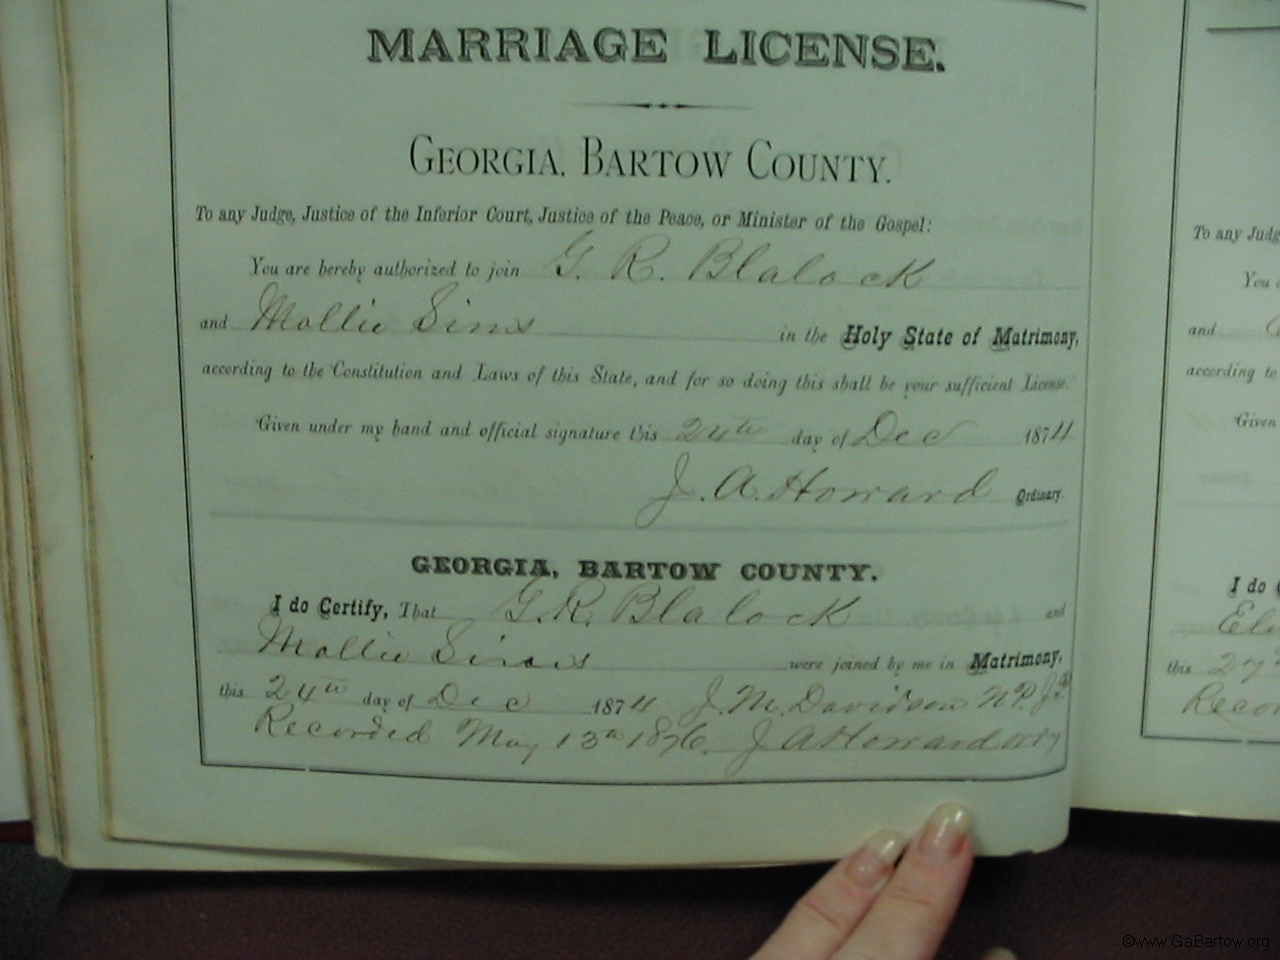 MARRIAGE LICENSE.
GEORGIA, BARTOW COUNTY.
To any Judge, Justice of the Inferior Court, Justice of the Peace, or Minister of the Gospel:
You are hereby authorized to join G. R. Blalock
and Mollie Sims in the Holy State of Matrimony,
according to the Constitution and Laws of this State, and for so doing this shall be your sufficient License.
Given under my hand and official signature this 24th day of Dec 1874
J. A. Howard Ordinary.
GEORGIA, BARTOW COUNTY.
I do Certify, That G. R. Blalock and
Mollie Sims were joined by me in Matrimony,
this 24th day of Dec 1874 J. M. Davidson N.P. J.P.
Recorded May 13th 1876. J A Howard ordy
To any Judg
You a
and
according to
Given
I do
Eli
this 27
Recor
©www.GaBartow.org